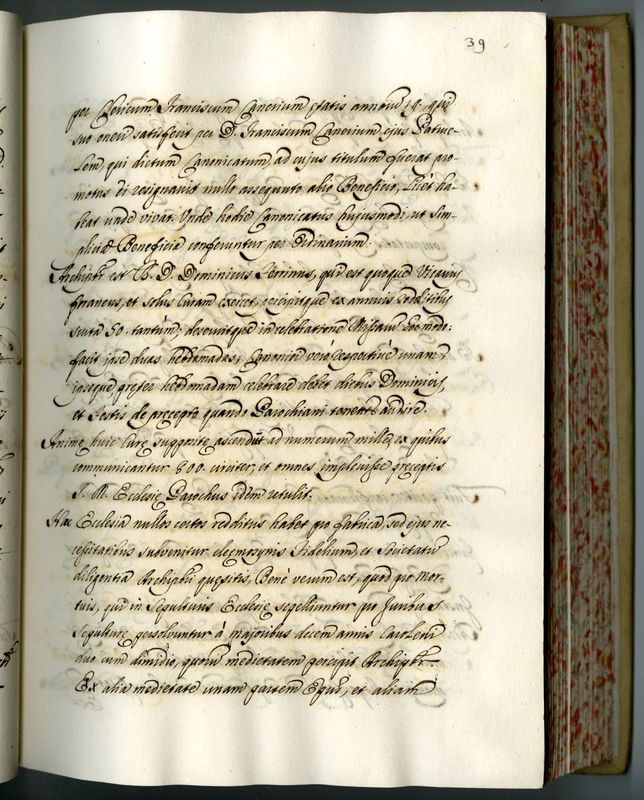 39
per Clericum Franciscum Canerium ętatis annorũ 19. qui
suo oneri satisfecit per D. Franciscum Canerium ejus Patrue-
lem, qui dictum Canonicatum, ad cujus titulum fuerat pro-
motus ei resignavit nullo assequuto alio Beneficio, licèt ha-
beat unde vivat. Unde hodie Canonicatus hujusmodi, ut sim-
plicia Beneficia conferuntur per Ordinarium.
Archipbr̃ est R. D. Dominicus qui est quoque Vicarius
foraneus, et solus Curam exercet, recipitque ex annuis redditibus
scuta 50. tantùm; deservitque in celebratione Missarũ hoc modo:
facit ipse duas hebdomadas; Canonici verò respectivè unam;
ipseque hebdomadam celebrare debet dictus Dominicus,
et Festis de precepto quando Parochiani tenentur audire.
Animę huic Curę suppositę ascendũt ad numerum mille, ex quibus
communicantur 800. circiter, et omnes implevisse preceptis
S. M. Ecclesię Parochus idem retulit.
Hęc Ecclesia nullos certos redditus habet pro fabrica, sed ejus ne-
cessitatibus subvenitur eleemosynis Fidelium, et Societatũ
diligentia Archipbr̃i quęsitis. Benè verum est, quod pro Mor-
tuis, qui in Sepulturis Ecclesię sepelliuntur pro Juribus
Sepulturę persolvuntur à majoribus decem annis Caroleni
duo cum dimidio, quorũ medietatem percipit Archipbr̃.
Ex alia medietate unam partem et aliam